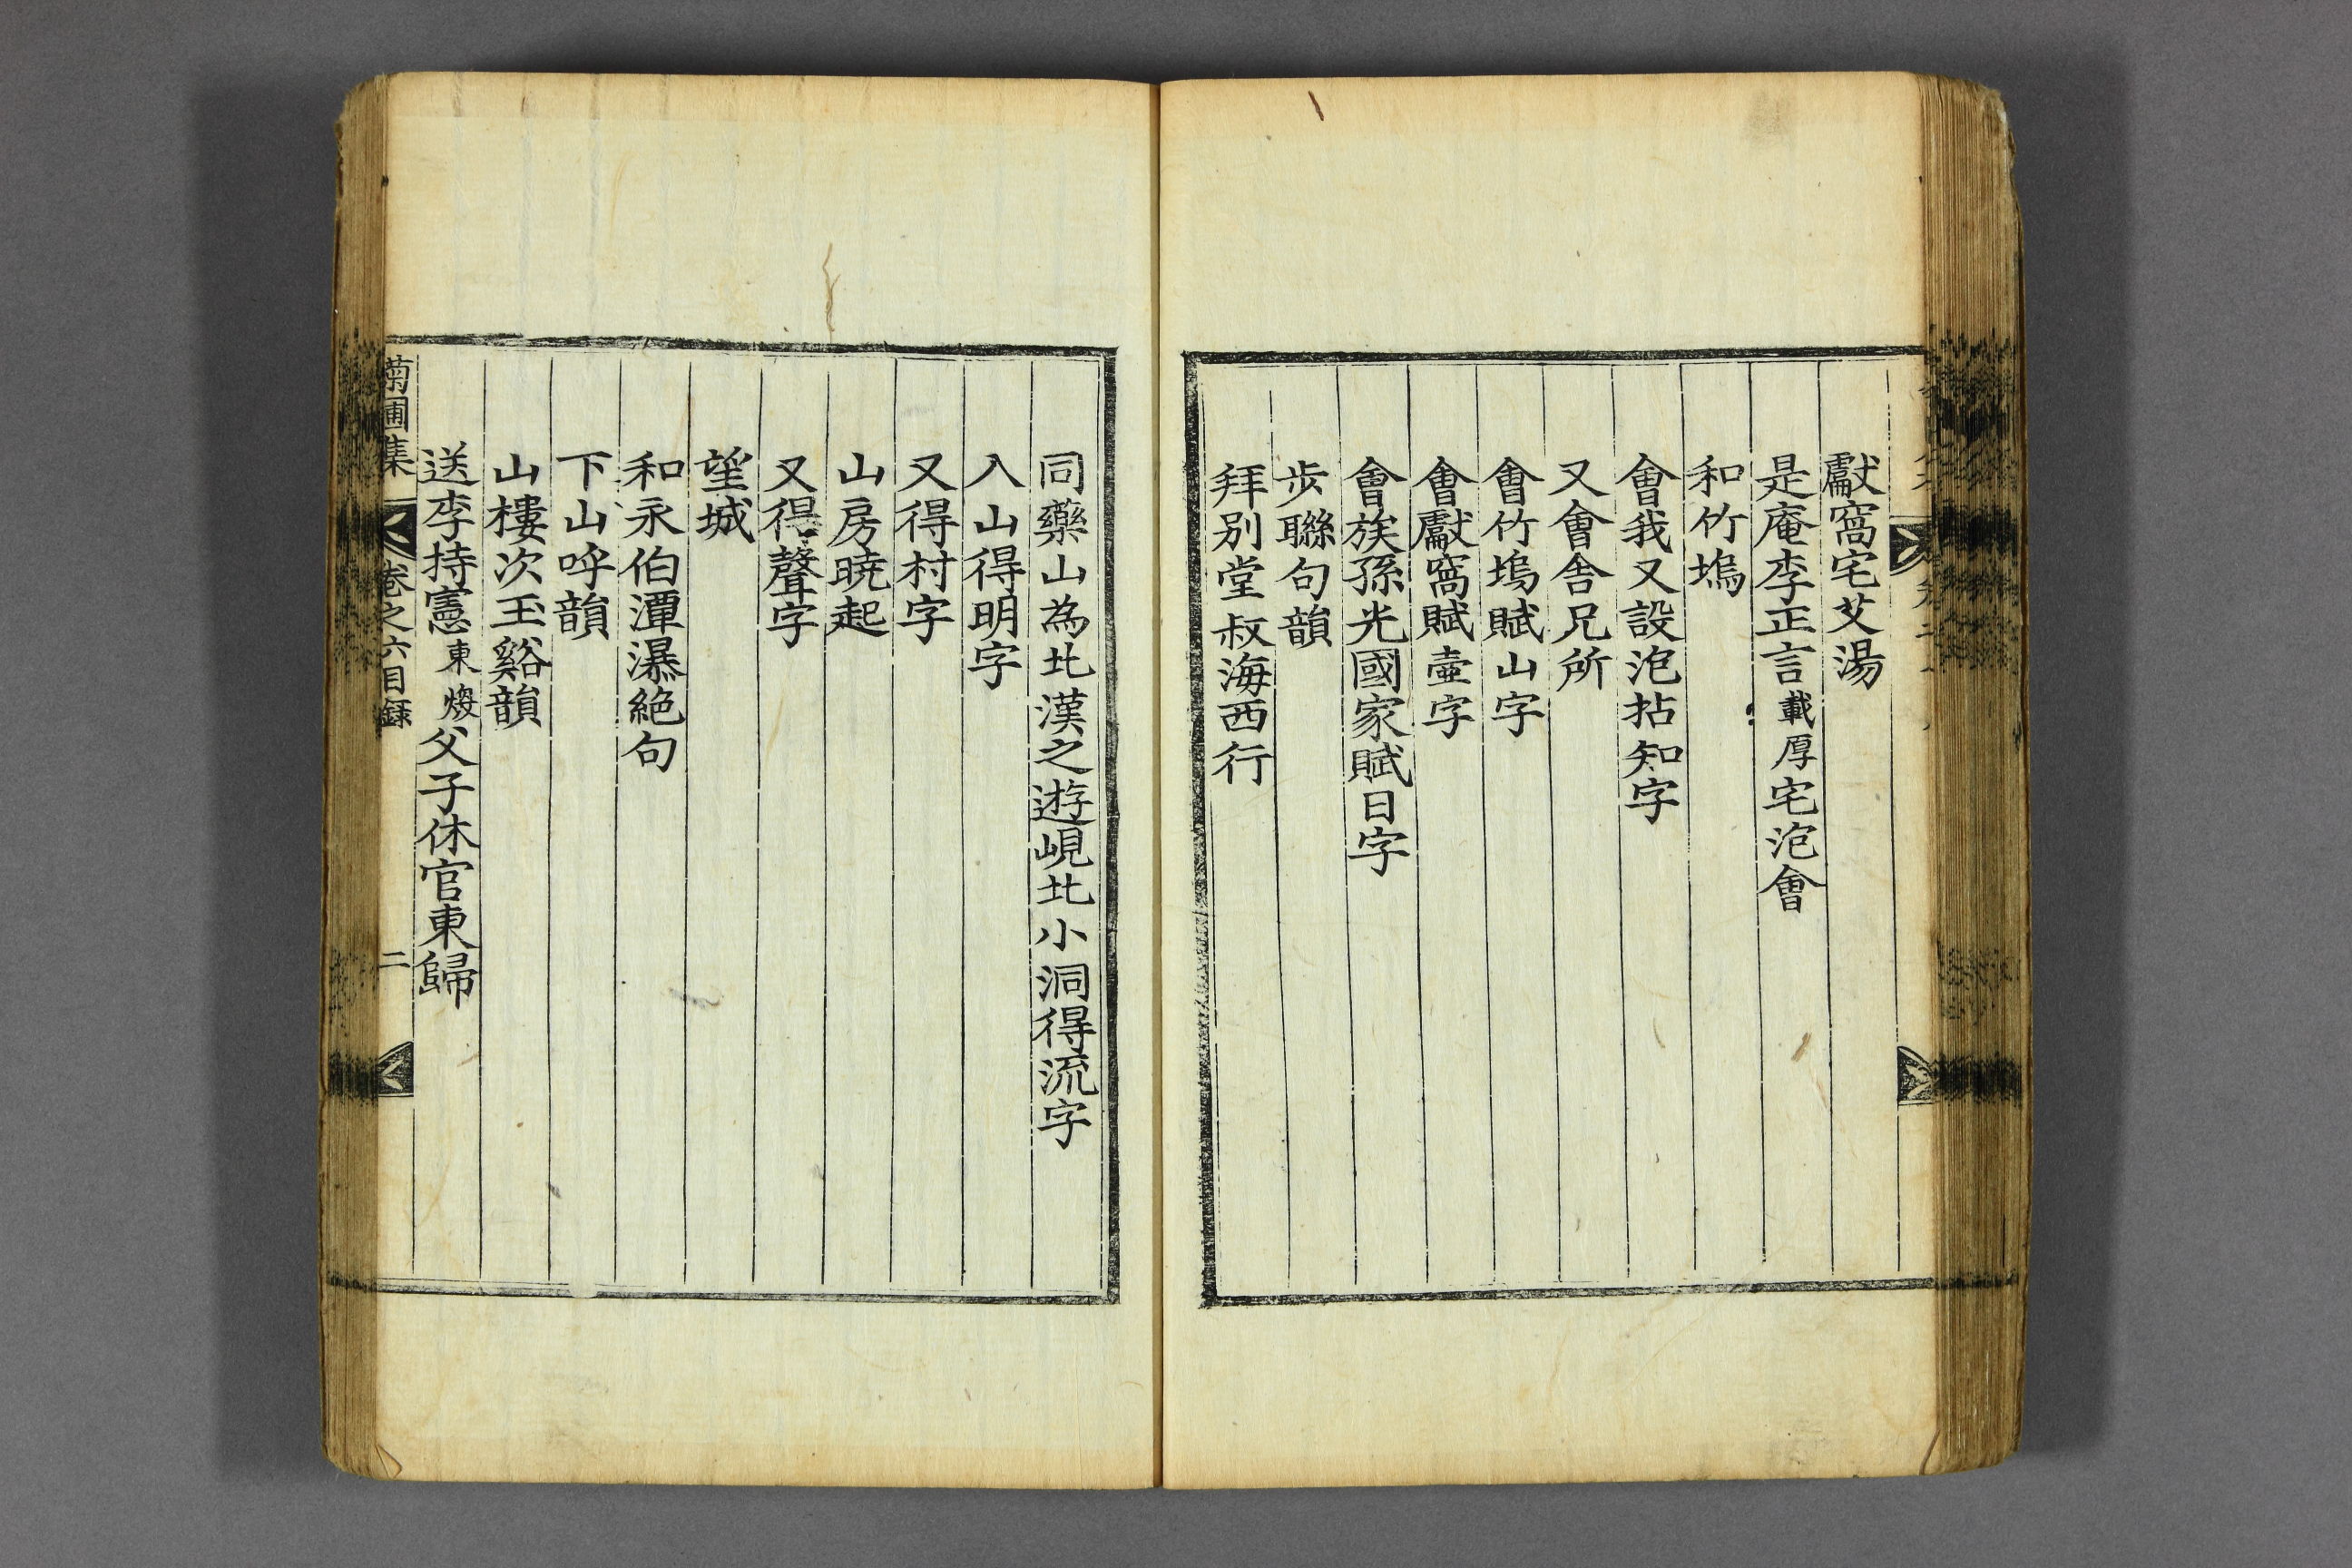 獻窩宅艾湯
是庵李正言載厚宅泡會
和竹塢
會我又設泡拈知字
又會舍兄所
會竹塢賦山字
會獻窩賦壷字
會族孫光國家賦日字
步聯句韻
拜別堂叔海西行
同藥山為北漢之遊峴北小洞得流字
入山得明字
又得村字
山房曉起
又得聲字
望城
和永伯潭瀑絶句
下山呼韻
山樓次玉谿韻
送李持憲東㷞父子休官東歸
菊圃集 卷之六目録 二